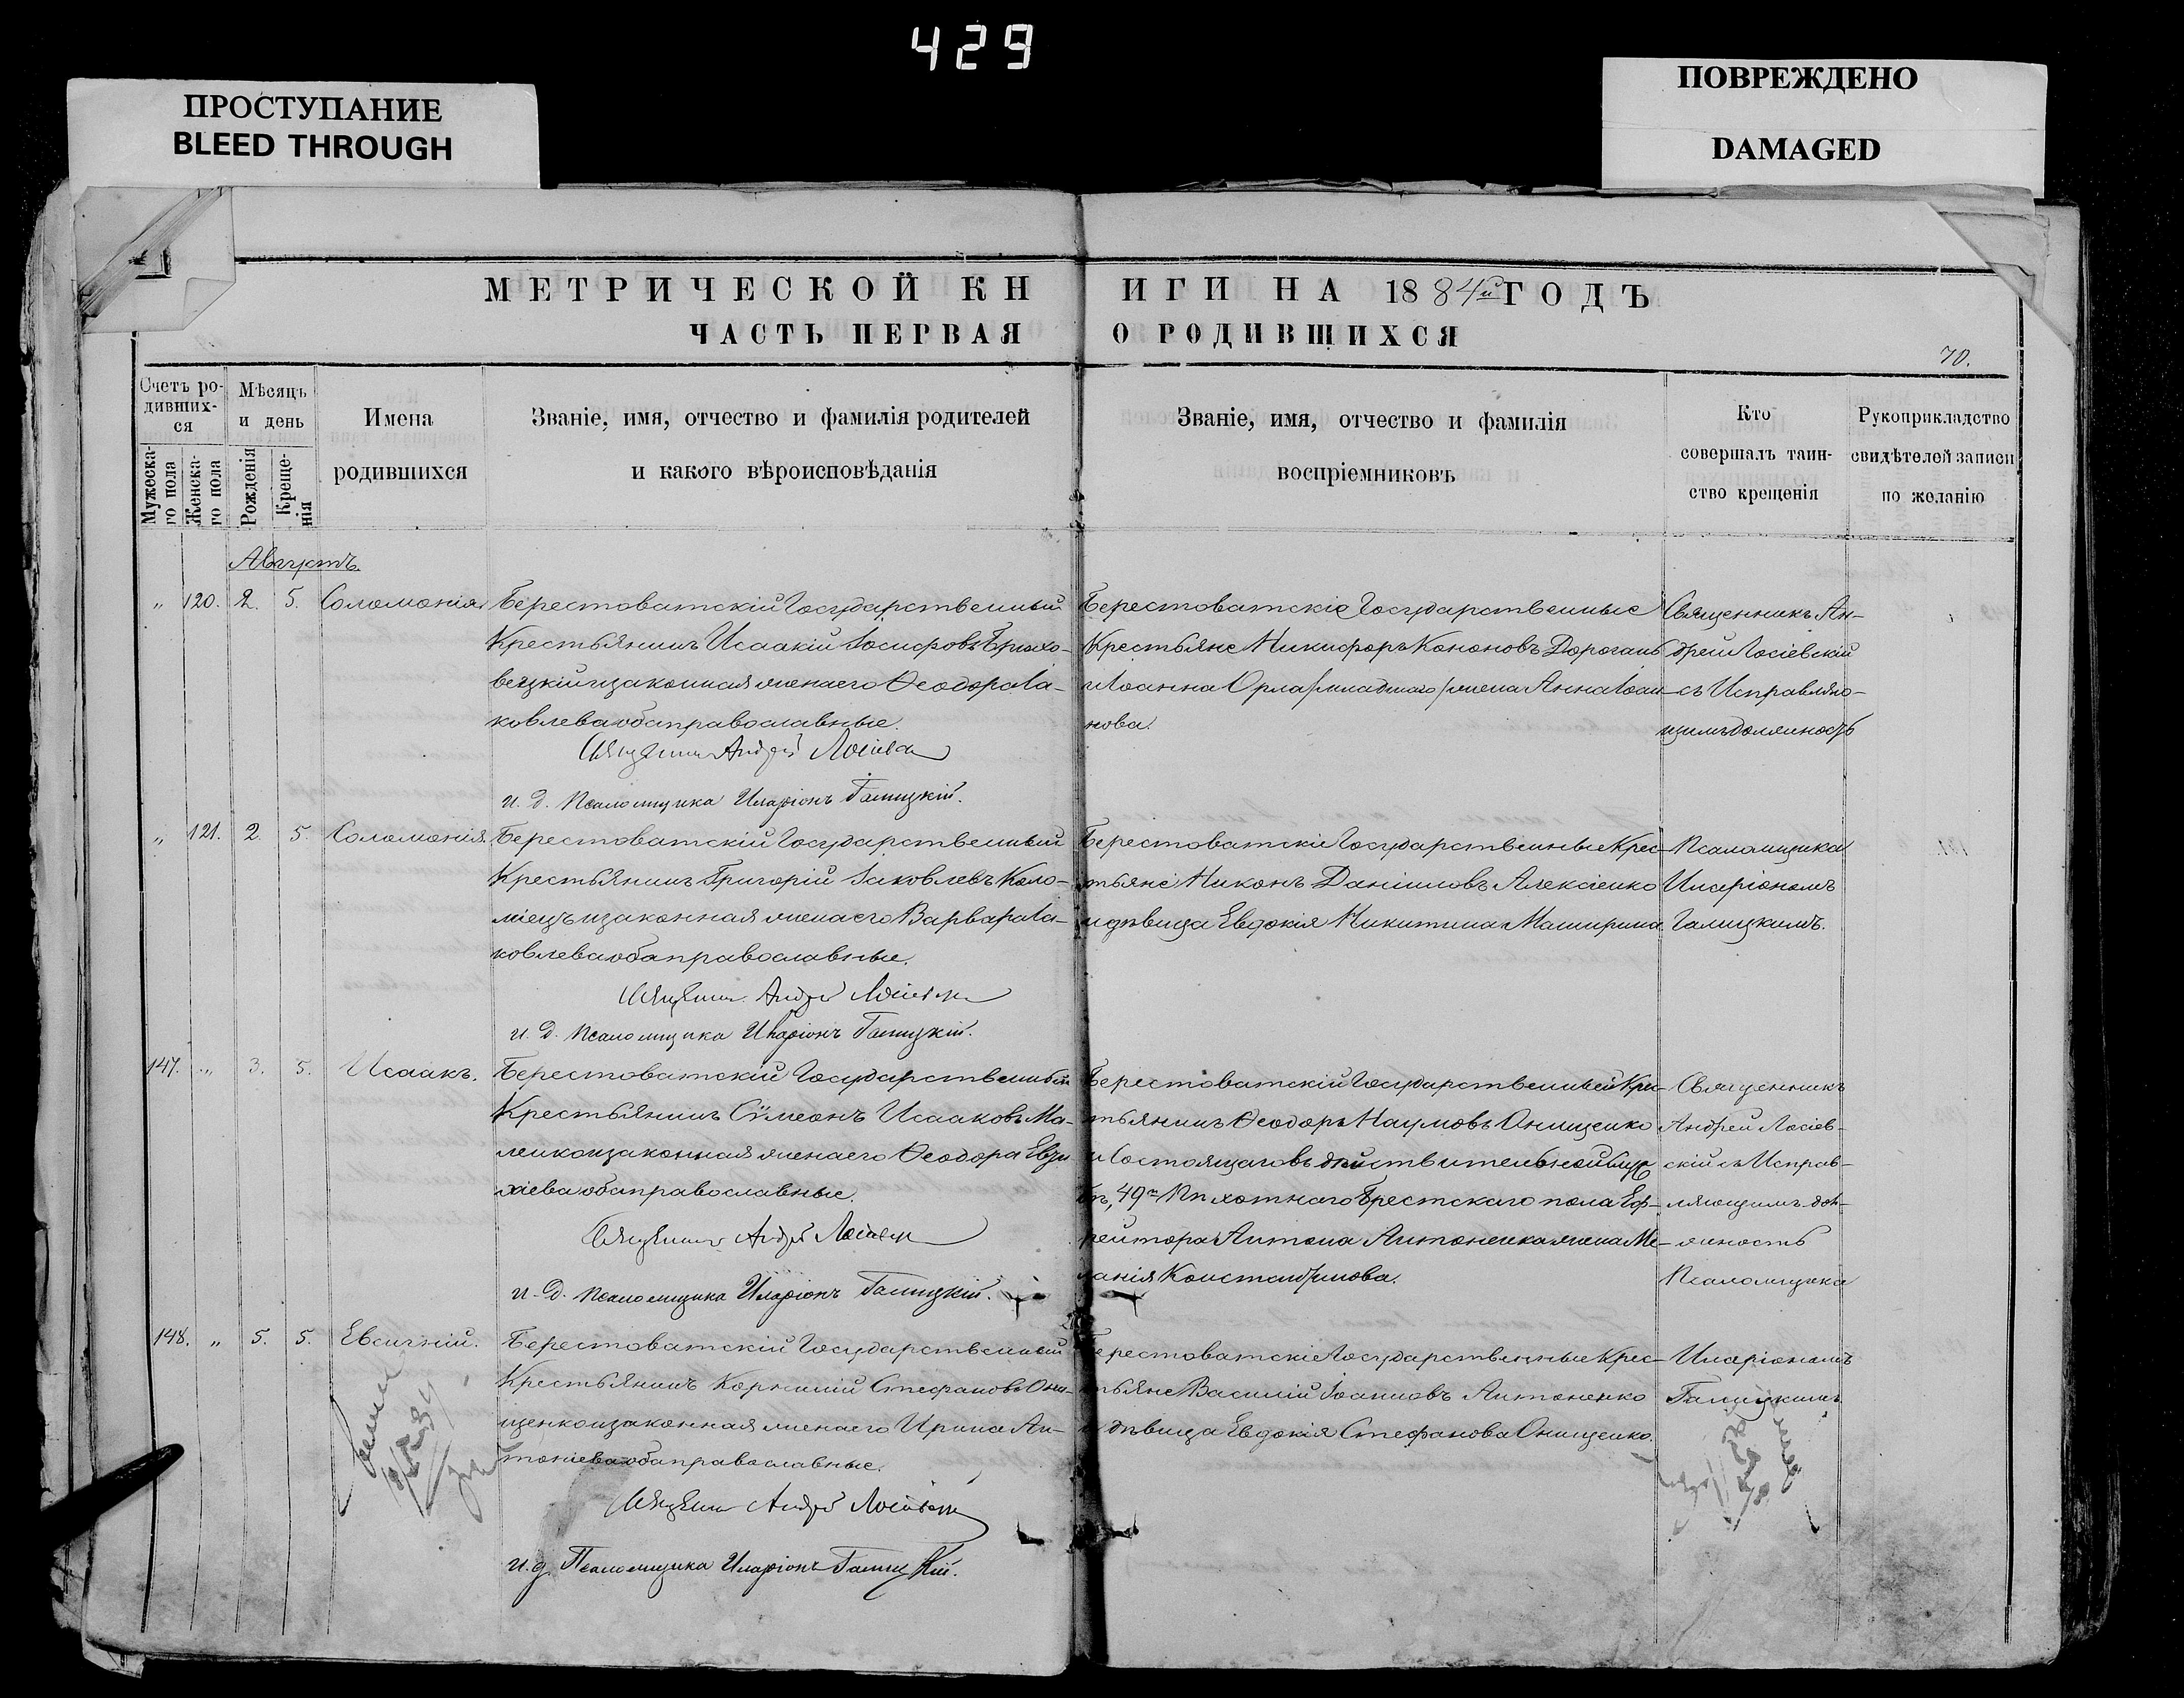 429
ПРОСТУПАНИЕ
BLEED THROUGH
ПОВРЕЖДЕНО
DAMAGED
МЕТРИЧЕСКОЙ КНИГИ НА 1884й ГОДЪ
ЧАСТЬ ПЕРВАЯ О РОДИВШИХСЯ
70.
Счетъ ро-
дивших-
ся
Мужеска-
го пола
Женска-
го пола
Мѣсяцъ
и день
Рожденія
Креще-
нія
Имена
родившихся
Званіе, имя, отчество и фамилія родителей
и какого вѣроисповѣданія
Званіе, имя, отчество и фамилія
воспріемниковъ
Кто
совершалъ таин-
ство крещенія
Рукоприкладство
свидѣтелей записи
по желанію
Августъ.
„ 120. 2. 5. Соломонія.
Берестоватскій Государственный
Крестьянинъ Исаакій Іосифовъ Брюхо-
вецкій и законная жена его Ѳеодора Іа-
ковлева оба православные.
Священникъ Андрей Лосіевскій
и. д. Псаломщика Иларіонъ Галицкій.
Берестоватскіе Государственные
Крестьяне Никифоръ Кононовъ Дорогань
и Іоанна Орла /младшаго/ жена Анна Іоан-
нова.
Священникъ Ан-
дрей Лосіевскій
съ Исправляю-
щимъ должность
„ 121. 2. 5. Соломонія.
Берестоватскій Государственный
Крестьянинъ Григорій Іаковлевъ Коло-
міецъ и законная жена его Варвара Іа-
ковлева оба православные.
Священникъ Андрей Лосіевскій
и. д. Псаломщика Иларіонъ Галицкій.
Берестоватскіе Государственные Крес-
тьяне Никонъ Даніиловъ Алексіенко
и дѣвица Евдокія Никитина Маширина.
Псаломщика
Иларіономъ
Галицкимъ.
147. „ 3. 5. Исаакъ.
Берестоватскій Государственный
Крестьянинъ Сѵмеонъ Исааковъ Ма-
ленко и законная жена его Ѳеодора Евѳи-
міева оба православные.
Священникъ Андрей Лосіевскій
и. д. Псаломщика Иларіонъ Галицкій.
Берестоватскій Государственный Крес-
тьянинъ Ѳеодоръ Наумовъ Онищенко
и Состоящаго въ дѣйствительной служ-
бѣ, 49го Пѣхотнаго Брестскаго полка Еф-
рейтора Антона Антоненка жена Ме-
ланія Константинова.
Священникъ
Андрей Лосіев-
скій съ Исправ-
ляющимъ дол-
жность
Псаломщика
148. „ 5. 5. Евсигній.
Берестоватскій Государственный
Крестьянинъ Корнилій Стефановъ Они-
щенко и законная жена его Ирина Ан-
тоніева оба православные.
Священникъ Андрей Лосіевскій
и. д. Псаломщика Иларіонъ Галицкій.
Берестоватскіе Государственные Крес-
тьяне Василій Іоанновъ Антоненко
и дѣвица Евдокія Стефанова Онищенко.
Иларіономъ
Галицкимъ